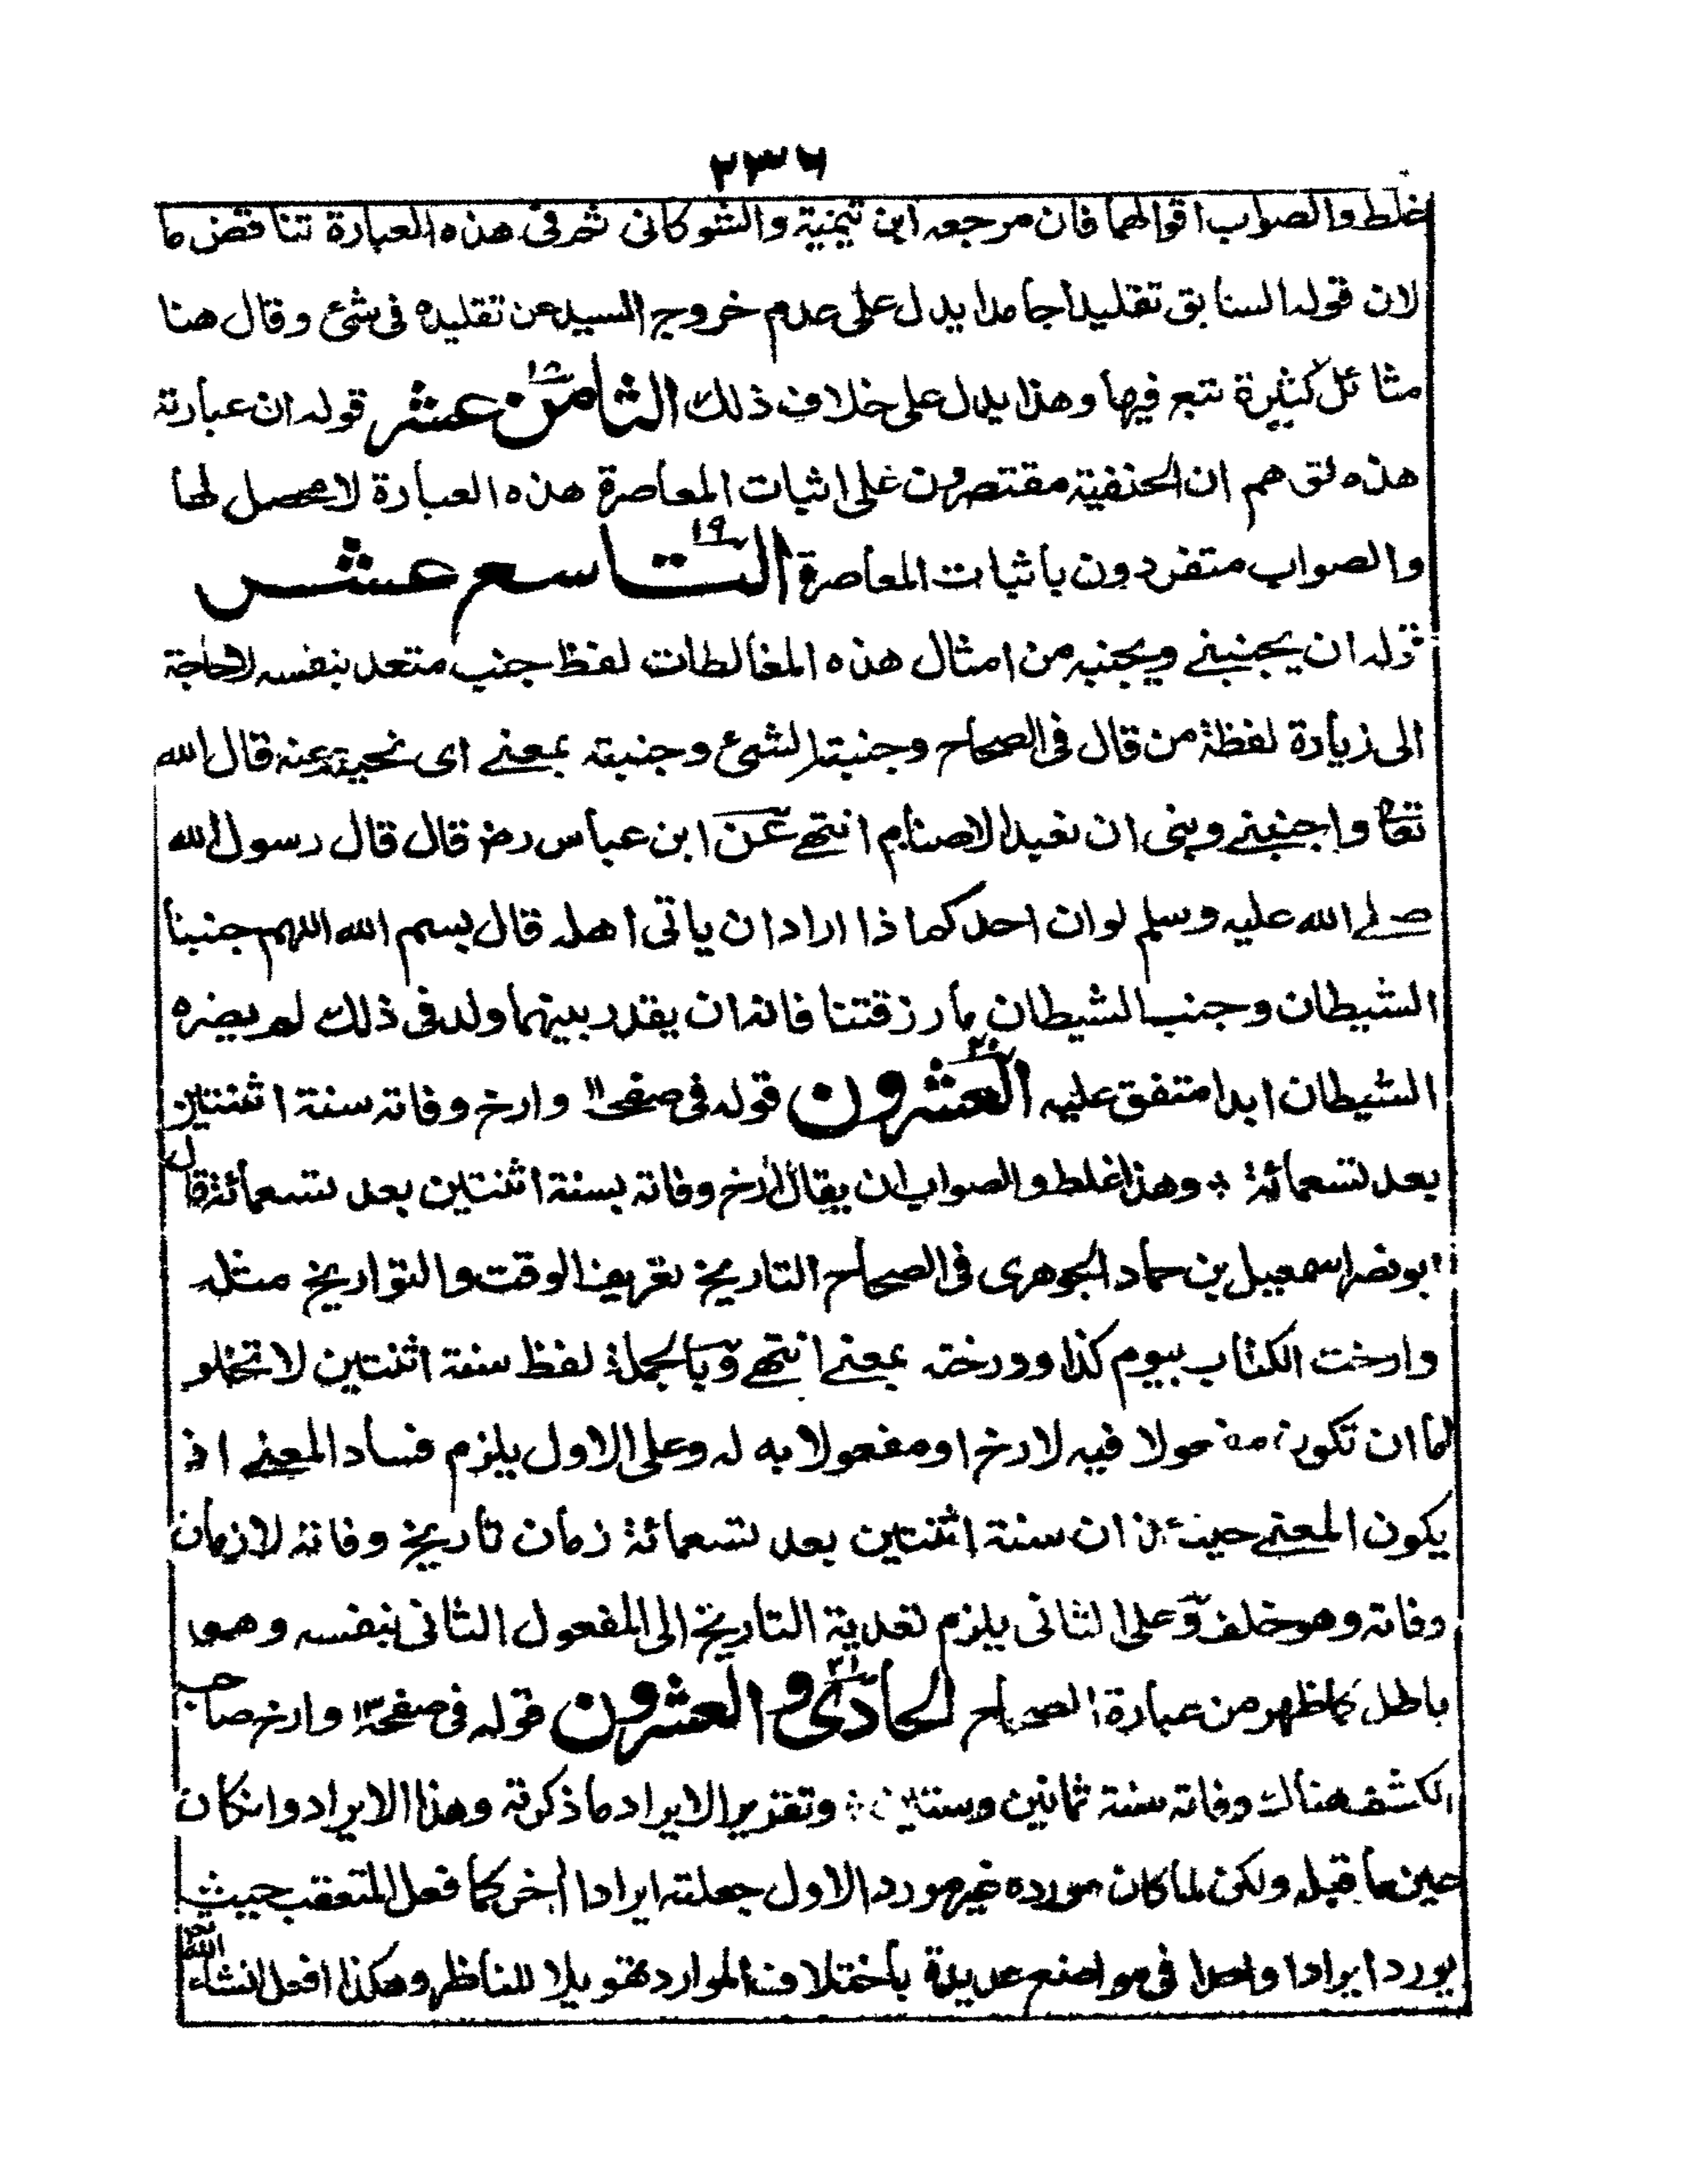 ٢٣٦
غلط والصواب اقوالهما فان مرجعه ابن تيمية والشوكانى ثم فى هذه العبارة تناقض ما
لان قوله السابق تقليدا جامدا يدل على عدم خروج السيد عن تقليده فى شئ وقال هنا
مثائل كثيرة تتبع فيها وهذا يدل على خلاف ذلك الثامن عشر ١٨ قوله ان عبارته
هذه توهم ان الحنفية مقتصرون على اثبات المعاصرة هذه العبارة لا محصل لها
والصواب متفردون باثبات المعاصرة التاسع عشر ١٩
قوله ان يجنبنے ويجنبه من امثال هذه المغالطات لفظ جنب متعد بنفسه لا حاجة
الى زيادة لفظة من قال فى الصحاح وجنبته الشئ وجنبته بمعنے اى نحيته عنه قال الله
تعا واجنبنے وبنى ان نعبد الاصنام انتهے عن ابن عباس رض قال قال رسول الله
صلے الله عليه وسلم لو ان احدكم اذا اراد ان ياتى اهله قال بسم الله اللهم جنبنا
الشيطان وجنب الشيطان ما رزقتنا فانه ان يقدر بينهما ولد فى ذلك لم يضره
الشيطان ابدا متفق عليه العشرون ٢٠ قوله فى صفحة ١١ وارخ وفاته سنة اثنتين
بعد تسعمائة ؞ وهذا غلط والصواب ان يقال ارخ وفاته بسنة اثنتين بعد تسعمائة قال
ابو نصر اسمعيل بن حماد الجوهرى فى الصحاح التاريخ تعريف الوقت والتواريخ مثله
وارخت الكتاب بيوم كذا وورخته بمعنے انتهے وبالجملة لفظ سنة اثنتين لا تخلو
اما ان تكون مفعولا فيه لارخ او مفعولا به له وعلى الاول يلزم فساد المعنے اذ
يكون المعنے حينئذ ان سنة اثنتين بعد تسعمائة زمان تاريخ وفاته لا زمان
وفاته وهو خلف وعلى الثانى يلزم تعدية التاريخ الى المفعول الثانى بنفسه وهو
باطل كما ظهر من عبارة الصحاح الحادى والعشرون ٢١ قوله فى صفحة ١٣ وارخ صاحب
الكشف هناك وفاته سنة ثمانين وستين ؞ وتقرير الايراد ما ذكرته وهذا الايراد وانكان
عين ما قبله ولكن لما كان مورده غير مورد الاول جعلته ايرادا اخر كما فعل المتعقب حيث
يورد ايرادا واحدا فى مواضع عديدة باختلاف الموارد تهويلا للناظر وهكذا افعل انشاء الله